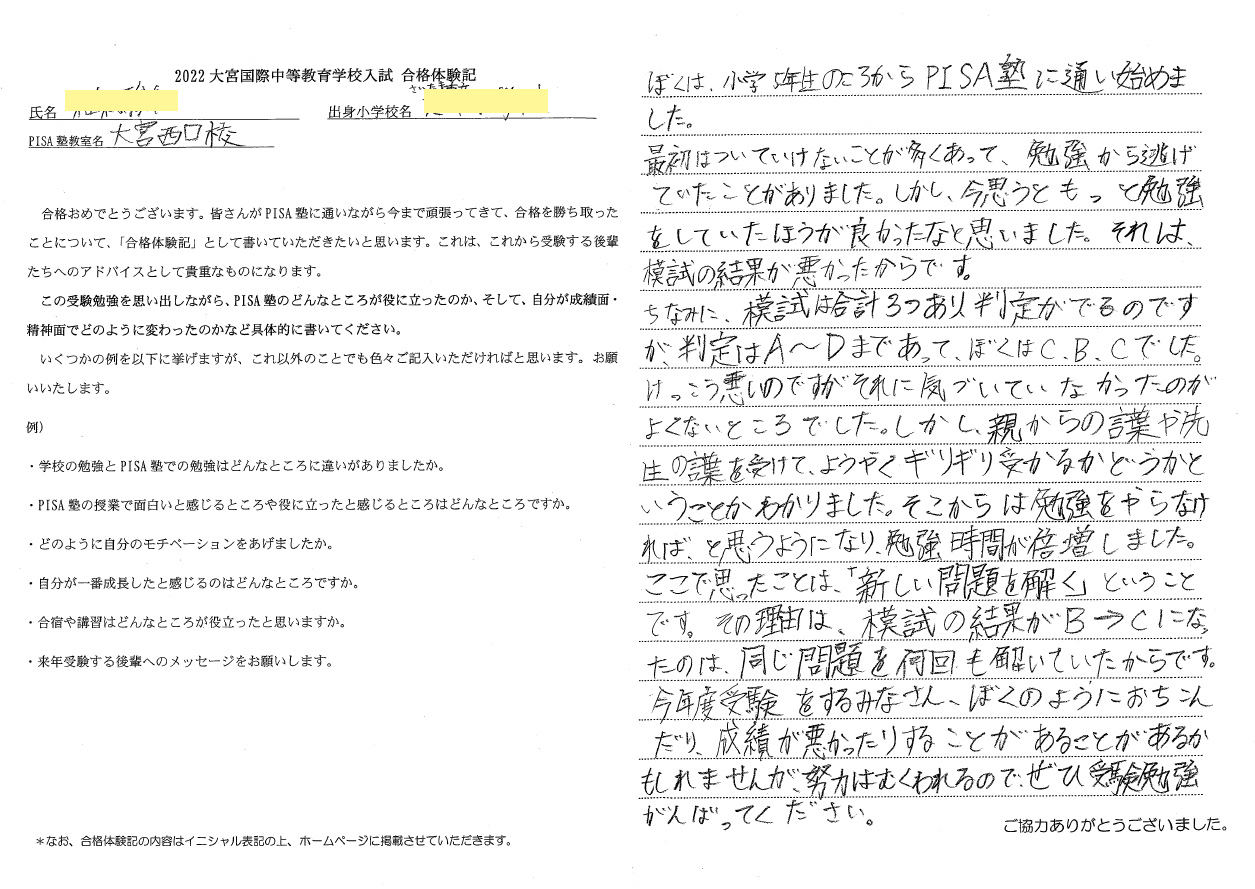 2022 大宮国際中等教育学校入試 合格体験記
氏名
出身小学校名
PISA 塾教室名 大宮西口校
合格おめでとうございます。皆さんが PISA 塾に通いながら今まで頑張ってきて、合格を勝ち取った
ことについて、「合格体験記」として書いていただきたいと思います。これは、これから受験する後輩
たちへのアドバイスとして貴重なものになります。
この受験勉強を思い出しながら、PISA 塾のどんなところが役に立ったのか、そして、自分が成績面・
精神面でどのように変わったのかなど具体的に書いてください。
いくつかの例を以下に挙げますが、これ以外のことでも色々ご記入いただければと思います。お願
いいたします。
例）
・学校の勉強と PISA 塾での勉強はどんなところに違いがありましたか。
・PISA 塾の授業で面白いと感じるところや役に立ったと感じるところはどんなところですか。
・どのように自分のモチベーションをあげましたか。
・自分が一番成長したと感じるのはどんなところですか。
・合宿や講習はどんなところが役立ったと思いますか。
・来年受験する後輩へのメッセージをお願いします。
＊なお、合格体験記の内容はイニシャル表記の上、ホームページに掲載させていただきます。
ぼくは、小学5年生のころからPISA塾に通い始めま
した。
最初はついていけないことが多くあって、勉強から逃げ
ていたことがありました。しかし、今思うともっと勉強
をしていたほうが良かったなと思いました。それは、
模試の結果が悪かったからです。
ちなみに、模試は合計3つあり判定がでるのです
が、判定はA～Dまであって、ぼくはC、B、Cでした。
けっこう悪いのですがそれに気づいていなかったのが
よくないところでした。しかし、親からの言葉や先
生の言葉を受けて、ようやくギリギリ受かるかどうかと
いうことがわかりました。そこからは勉強をやらなけ
れば、と思うようになり、勉強時間が倍増しました。
ここで思ったことは、「新しい問題を解く」ということ
です。その理由は、模試の結果がB→Cになっ
たのは、同じ問題を何回も解いていたからです。
今年度受験をするみなさん、ぼくのようにおちこん
だり、成績が悪かったりすることがあることがあるか
もしれませんが、努力はむくわれるので、ぜひ受験勉強
がんばってください。
ご協力ありがとうございました。